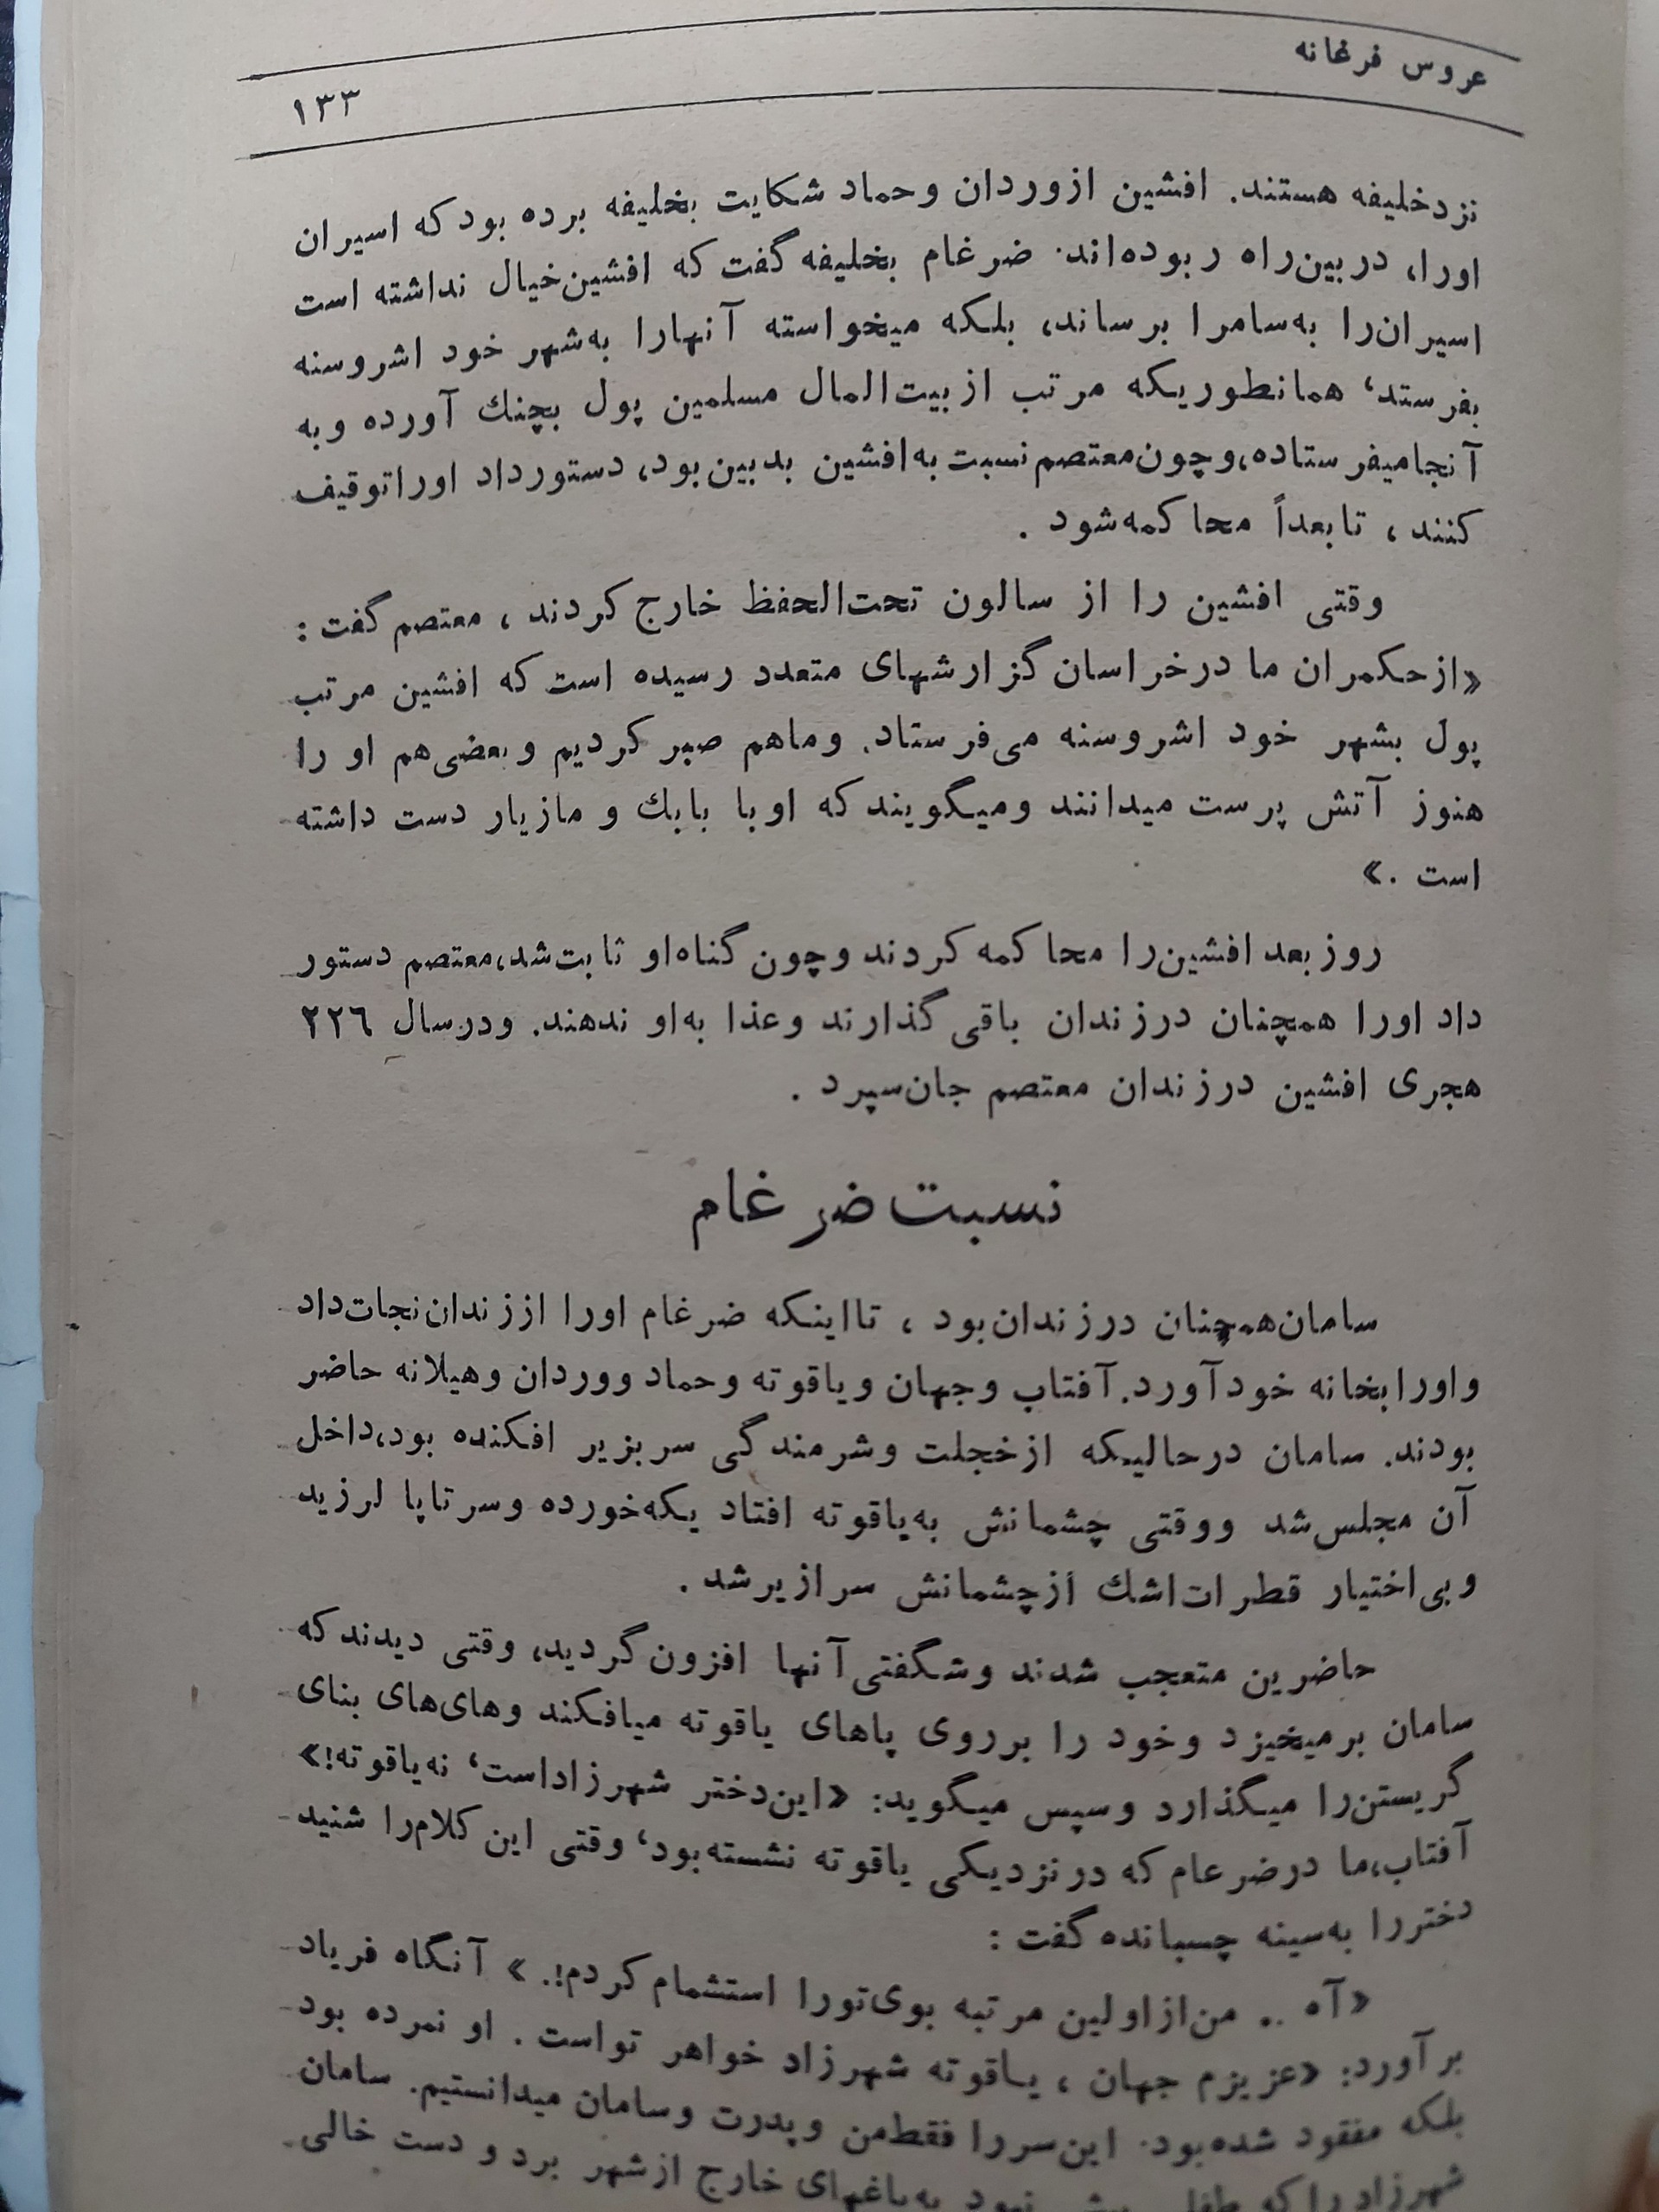 عروس فرغانه
۱۳۳
نزدخلیفه هستند. افشین ازوردان وحماد شکایت بخلیفه برده بودکه اسیران
اورا، دربین‌راه ربوده‌اند. ضرغام بخلیفه گفت که افشین‌خیال نداشته است
اسیران‌را به‌سامرا برساند، بلکه میخواسته آنهارا به‌شهر خود اشروسنه
بفرستد، همانطوریکه مرتب ازبیت‌المال مسلمین پول بچنك آورده وبه
آنجامیفرستاده،وچون‌معتصم‌نسبت به‌افشین بدبین‌بود، دستورداد اوراتوقیف
کنند، تابعداً محاکمه‌شود .
وقتی افشین را از سالون تحت‌الحفظ خارج‌کردند ، معتصم‌گفت :
«ازحکمران ما درخراسان گزارشهای متعدد رسیده است‌که افشین مرتب
پول بشهر خود اشروسنه می‌فرستاد. وماهم صبر کردیم وبعضی‌هم او را
هنوز آتش پرست میدانند ومیگویند که اوبا بابك و مازیار دست داشته
است .»
روزبعد افشین‌را محاکمه‌کردند وچون گناه‌او ثابت‌شد،معتصم دستور
داد اورا همچنان درزندان باقی‌گذارند وعذا به‌او ندهند. ودرسال ۲۲٦
هجری افشین درزندان معتصم جان‌سپرد .
نسبت ضرغام
سامان‌همچنان درزندان‌بود ، تااینکه ضرغام اورا اززندان‌نجات‌داد
واورابخانه خودآورد. آفتاب وجهان ویاقوته وحماد ووردان وهیلانه حاضر
بودند. سامان درحالیکه ازخجلت وشرمندگی سربزیر افکنده بود،داخل
آن مجلس‌شد ووقتی چشمانش به‌یاقوته افتاد یکه‌خورده وسرتاپا لرزید
وبی‌اختیار قطرات‌اشك ازچشمانش سرازیرشد .
حاضرین متعجب شدند وشگفتی‌آنها افزون‌گردید، وقتی دیدندکه
سامان برمیخیزد وخود را برروی پاهای یاقوته میافکند وهای‌های بنای
گریستن‌را میگذارد وسپس میگوید: «این‌دختر شهرزاداست، نه‌یاقوته!»
آفتاب،ما درضرعام که درنزدیکی یاقوته نشسته‌بود، وقتی این‌کلام‌را شنید
دختررا به‌سینه چسبانده گفت :
«آه .. من‌ازاولین مرتبه بوی‌تورا استشمام‌کردم!. » آنگاه فریاد
برآورد: «عزیزم جهان ، یاقوته شهرزاد خواهر تواست . او نمرده بود
بلکه مفقود شده‌بود. این‌سررا فقط‌من وپدرت وسامان میدانستیم. سامان
شهرزاد راکه طفلی بیش نبود به‌باغهای خارج ازشهر برد و دست خالی